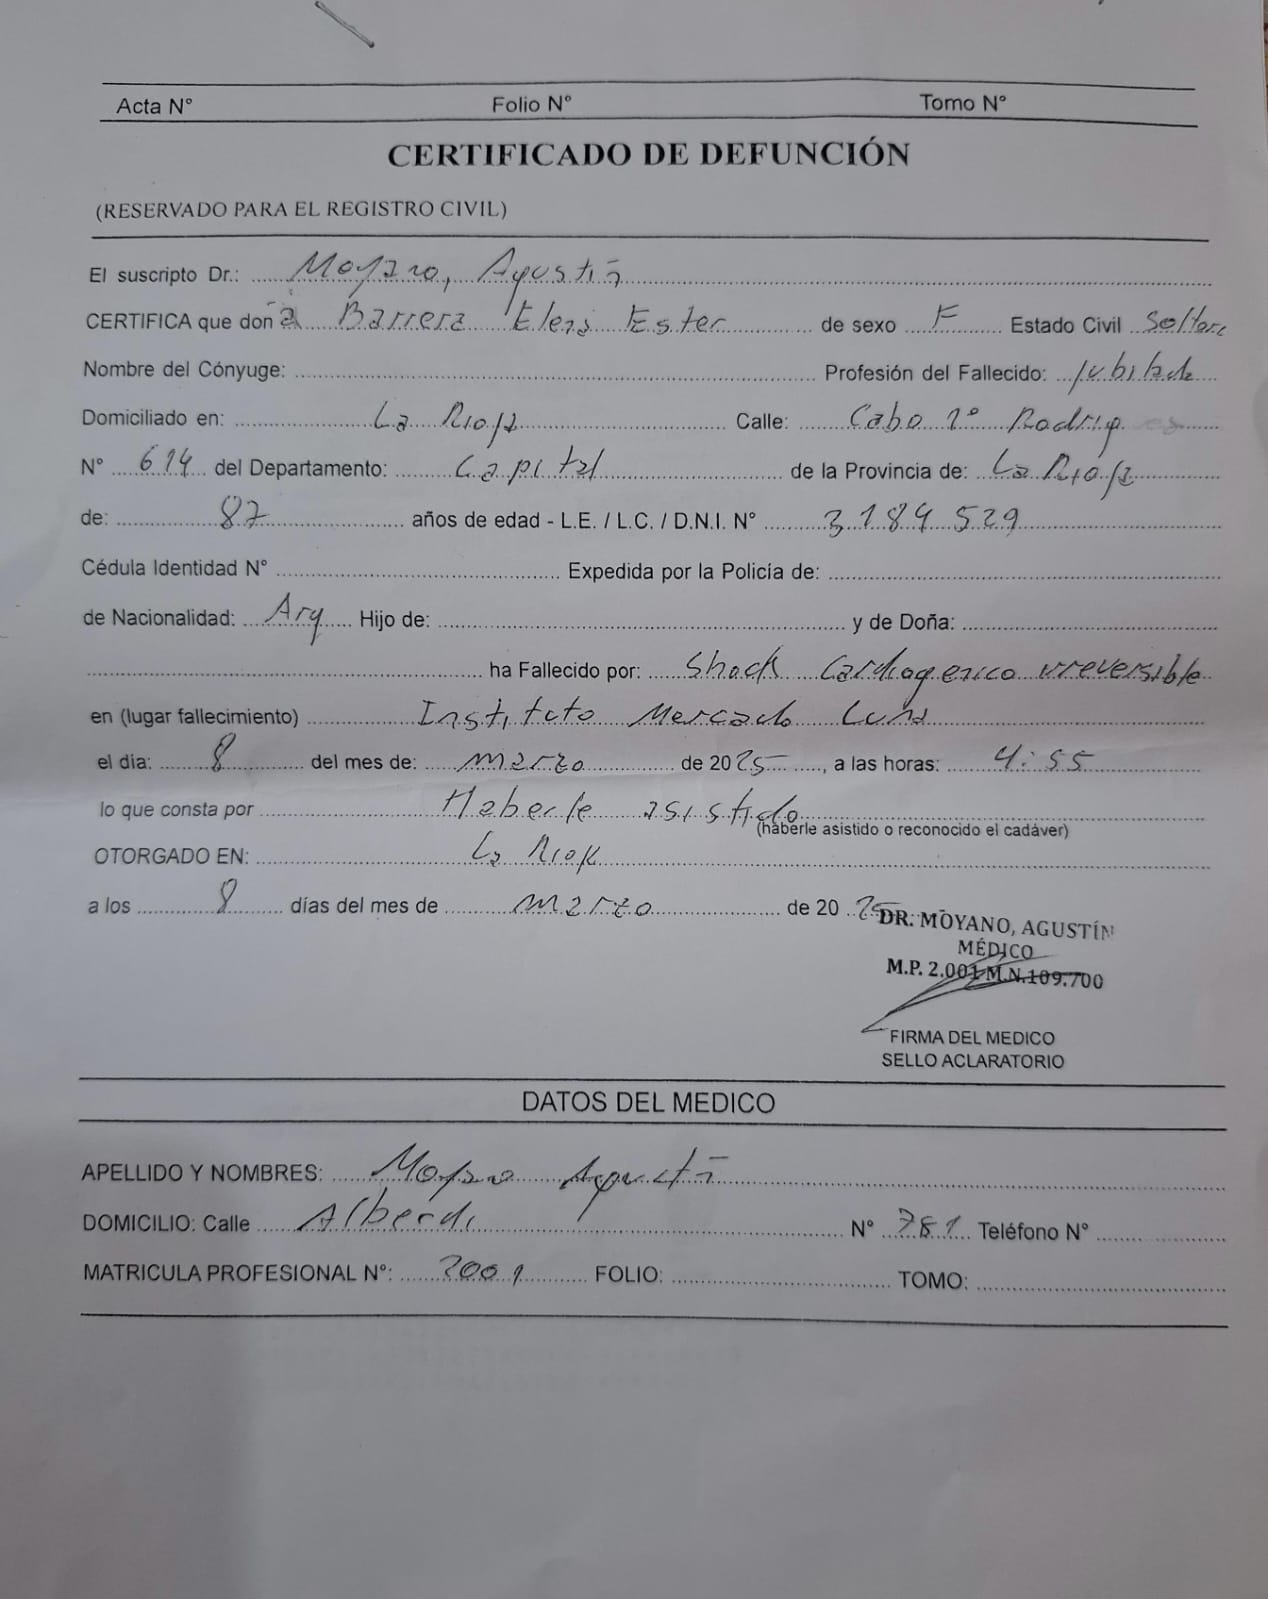 Acta N° Folio N° Tomo N°
CERTIFICADO DE DEFUNCIÓN
(RESERVADO PARA EL REGISTRO CIVIL)
El suscripto Dr.: Moyano, Agustín
CERTIFICA que don a Barrera Ester de sexo F Estado Civil Soltera
Nombre del Cónyuge: Profesión del Fallecido: Jubilada
Domiciliado en: La Rioja Calle: Cabo 1° Rodrig
N° 614 del Departamento: Capital de la Provincia de: La Rioja
de: 87 años de edad - L.E. / L.C. / D.N.I. N° 3.189.529
Cédula Identidad N° Expedida por la Policía de:
de Nacionalidad: Arg Hijo de: y de Doña:
ha Fallecido por: Shock Cardiogenico irreversible
en (lugar fallecimiento) Instituto Mercado Luna
el día: 8 del mes de: marzo de 2025, a las horas: 4:55
lo que consta por Haberle asistido
(haberle asistido o reconocido el cadáver)
OTORGADO EN: La Rioja
a los 8 días del mes de marzo de 2025
DR. MOYANO, AGUSTÍN
MÉDICO
M.P. 2.001 M.N.109.700
FIRMA DEL MEDICO
SELLO ACLARATORIO
DATOS DEL MEDICO
APELLIDO Y NOMBRES: Moyano Agustín
DOMICILIO: Calle Alberdi N° 781 Teléfono N°
MATRICULA PROFESIONAL N°: 2001 FOLIO: TOMO: